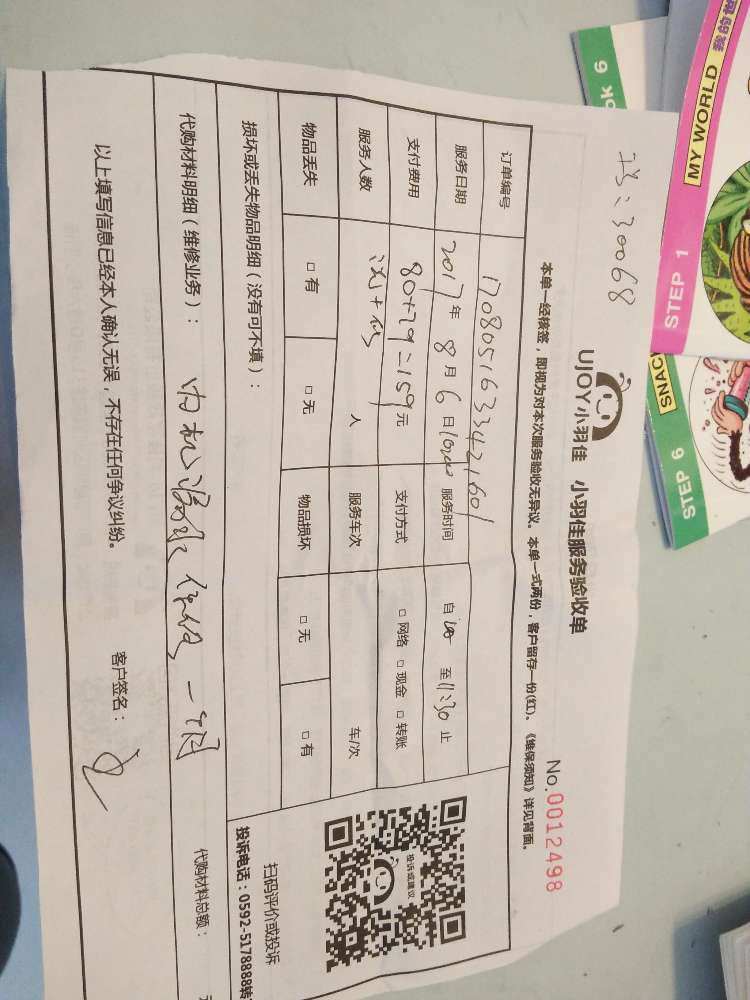 工号:30068
UJOY小羽佳 小羽佳服务验收单
No.0012498
本单一经核签，即视为对本次服务验收无异议。本单一式两份，客户留存一份(红)。《维保须知》详见背面。
订单编号 1708051633421601
服务日期 2017年8月6日 服务时间 自 至11:30止
支付费用 80+79=159元 支付方式 □网络 □现金 □转账
服务人数 人 服务车次 车/次
物品丢失 □有 □无 物品损坏 □无 □有
损坏或丢失物品明细（没有可不填）：
代购材料明细（维修业务）： 内机漏水保修一个月
代购材料总额：
以上填写信息已经本人确认无误，不存在任何争议纠纷。
客户签名：
投诉或建议
扫码评价或投诉
投诉电话：0592-5178888转
MY WORLD 我的世
STEP 1
OK 6
SNAC
STEP 6